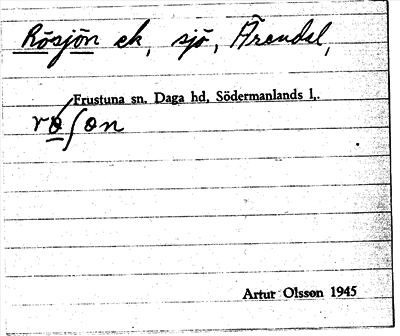 Rösjön ek, sjö, Ärendal,
Frustuna sn. Daga hd, Södermanlands l,.
røʃøn
Artur Olsson 1945